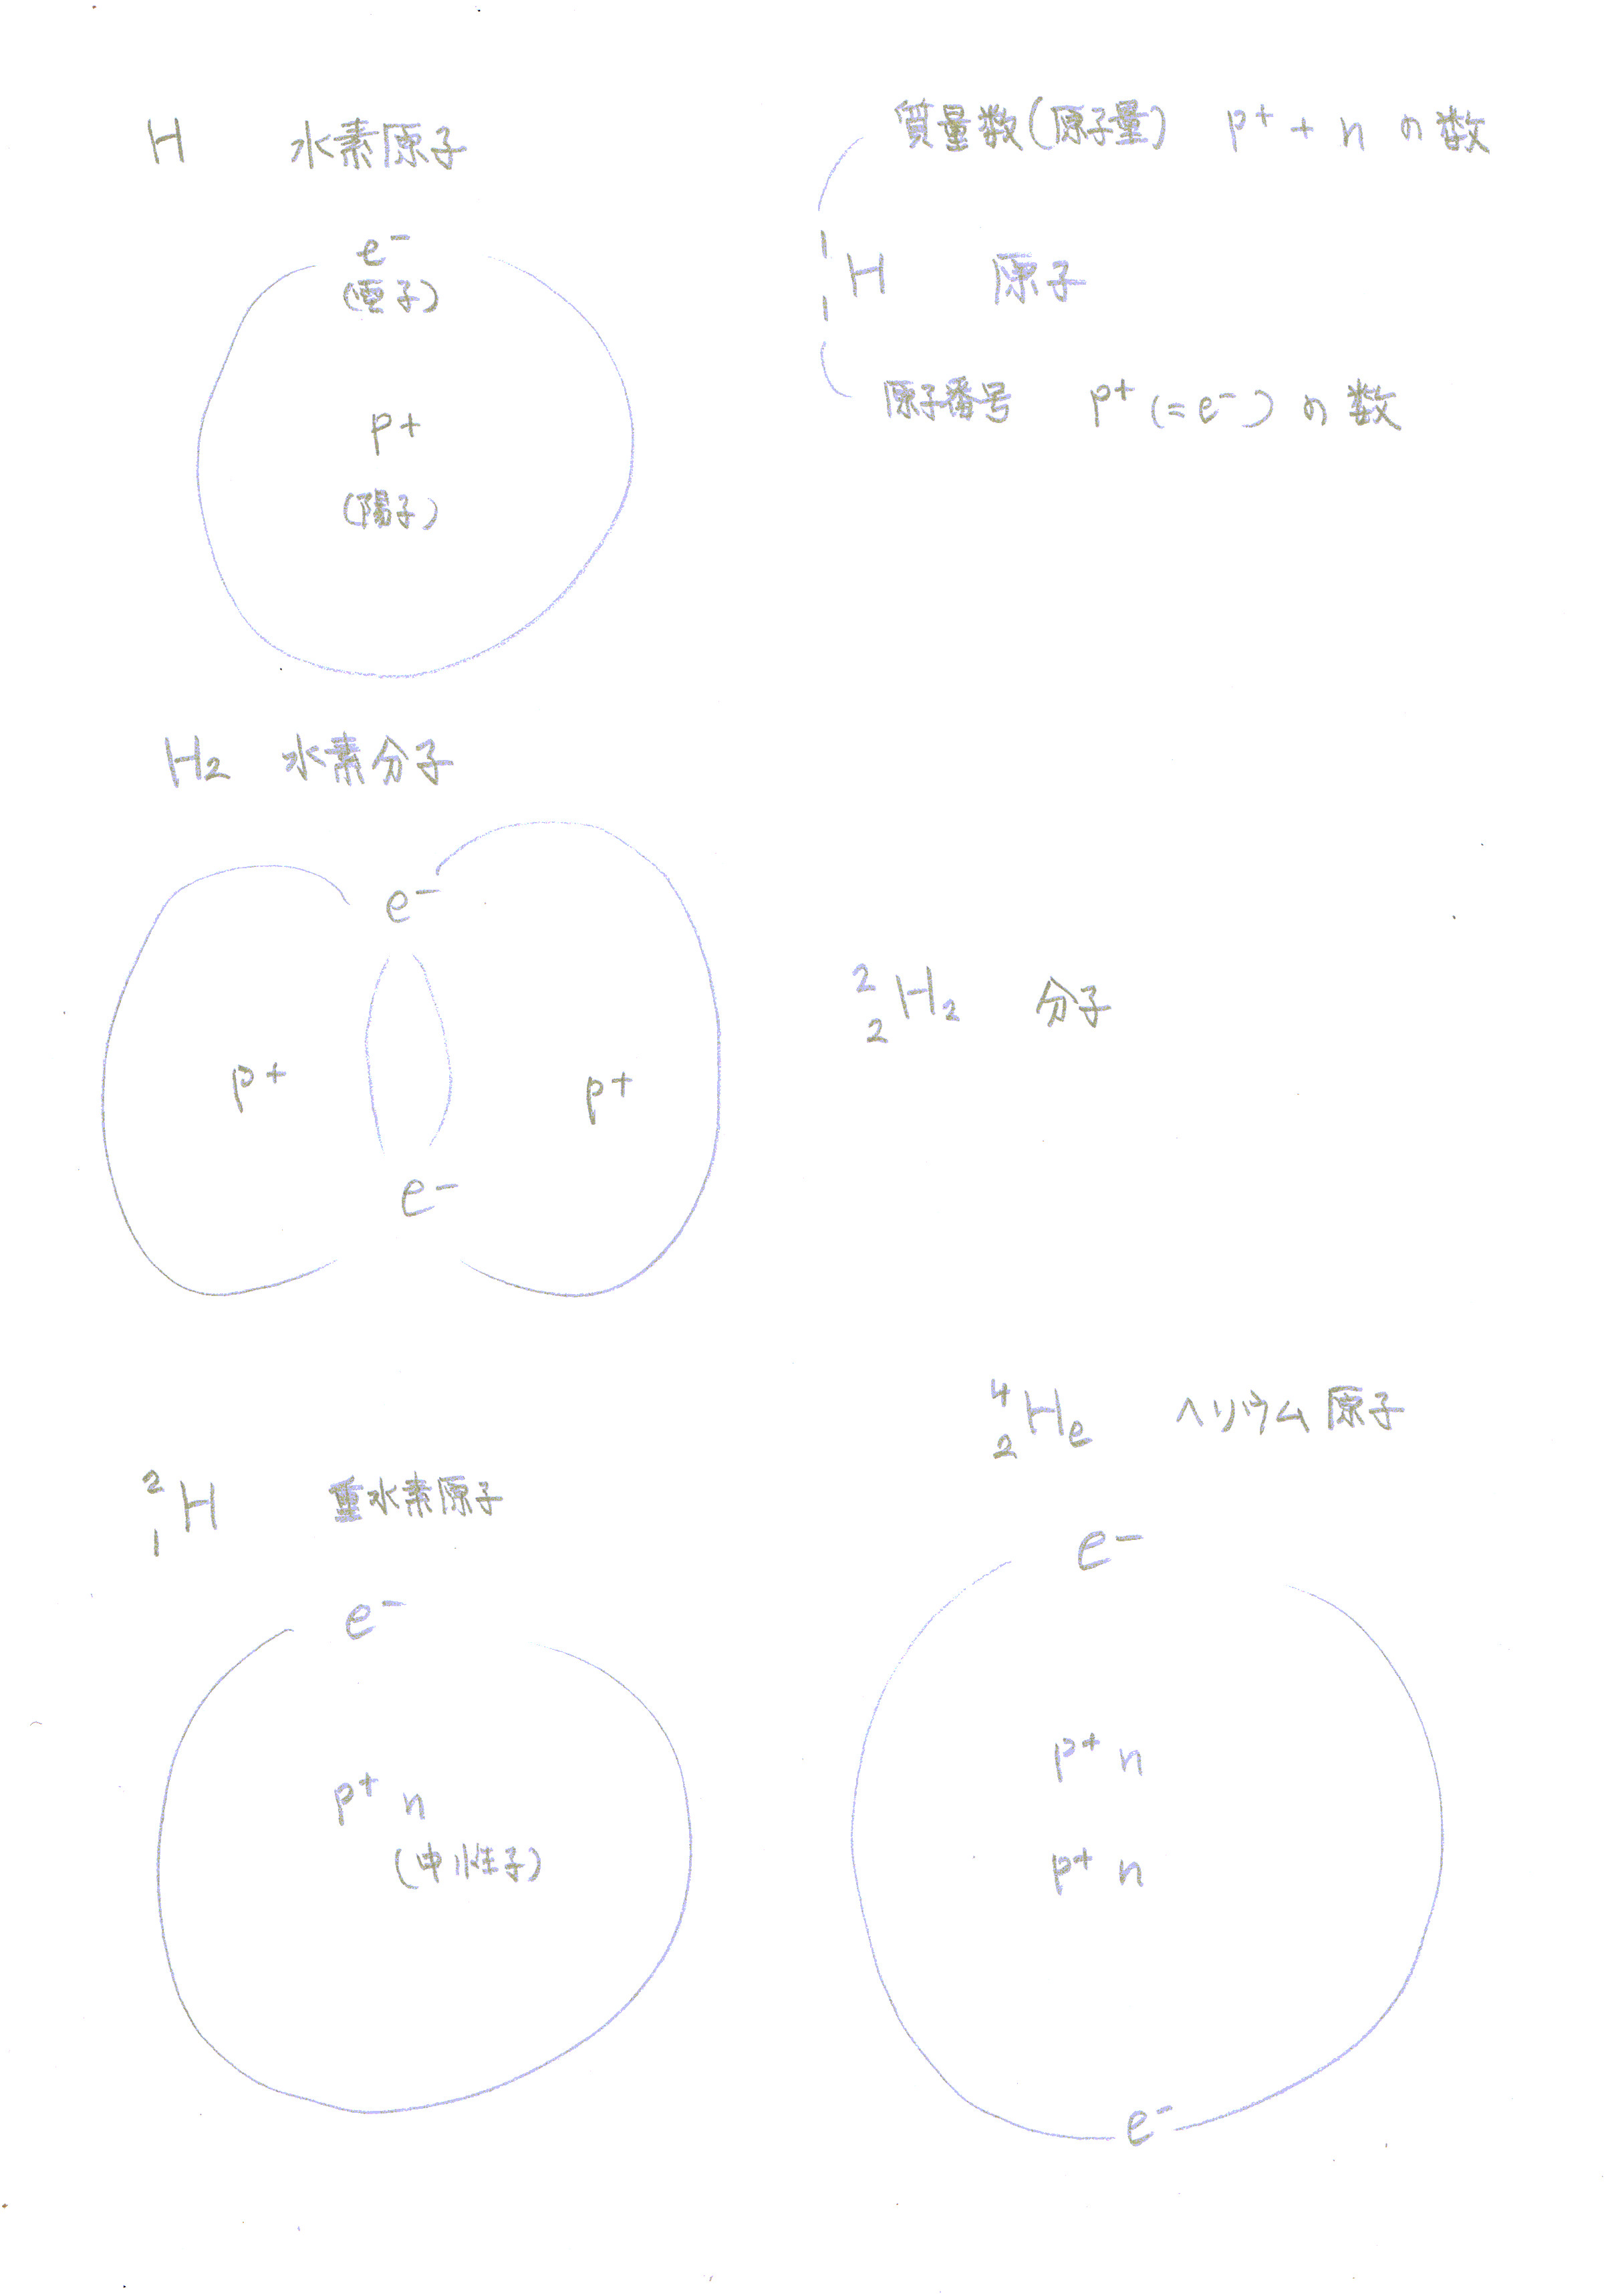 H 水素原子
e⁻
(電子)
p+
(陽子)
質量数(原子量) p⁺ + n の数
¹₁H 原子
原子番号 p⁺(=e⁻)の数
H₂ 水素分子
e⁻
p+ p+
e⁻
²₂H₂ 分子
²₁H 重水素原子
e⁻
p⁺ n
(中性子)
⁴₂He ヘリウム原子
e⁻
p⁺ n
p⁺ n
e⁻